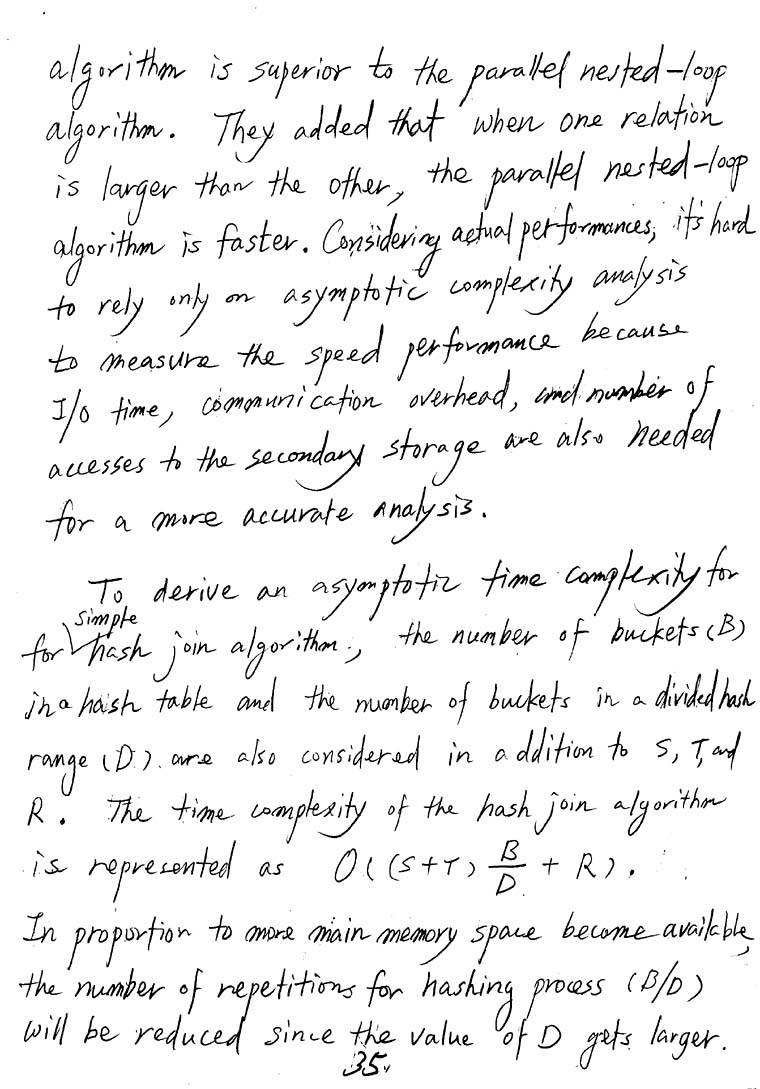 algorithm is superior to the parallel nested-loop
algorithm. They added that when one relation
is larger than the other, the parallel nested-loop
algorithm is faster. Considering actual performances, it's hard
to rely only on asymptotic complexity analysis
to measure the speed performance because
I/O time, communication overhead, and number of
accesses to the secondary storage are also needed
for a more accurate analysis.
To derive an asymptotic time complexity for
simple
for hash join algorithm, the number of buckets (B)
in a hash table and the number of buckets in a divided hash
range (D) are also considered in addition to S, T, and
R. The time complexity of the hash join algorithm
is represented as O((S+T) B/D + R).
In proportion to more main memory space become available,
the number of repetitions for hashing process (B/D)
will be reduced since the value of D gets larger.
35.